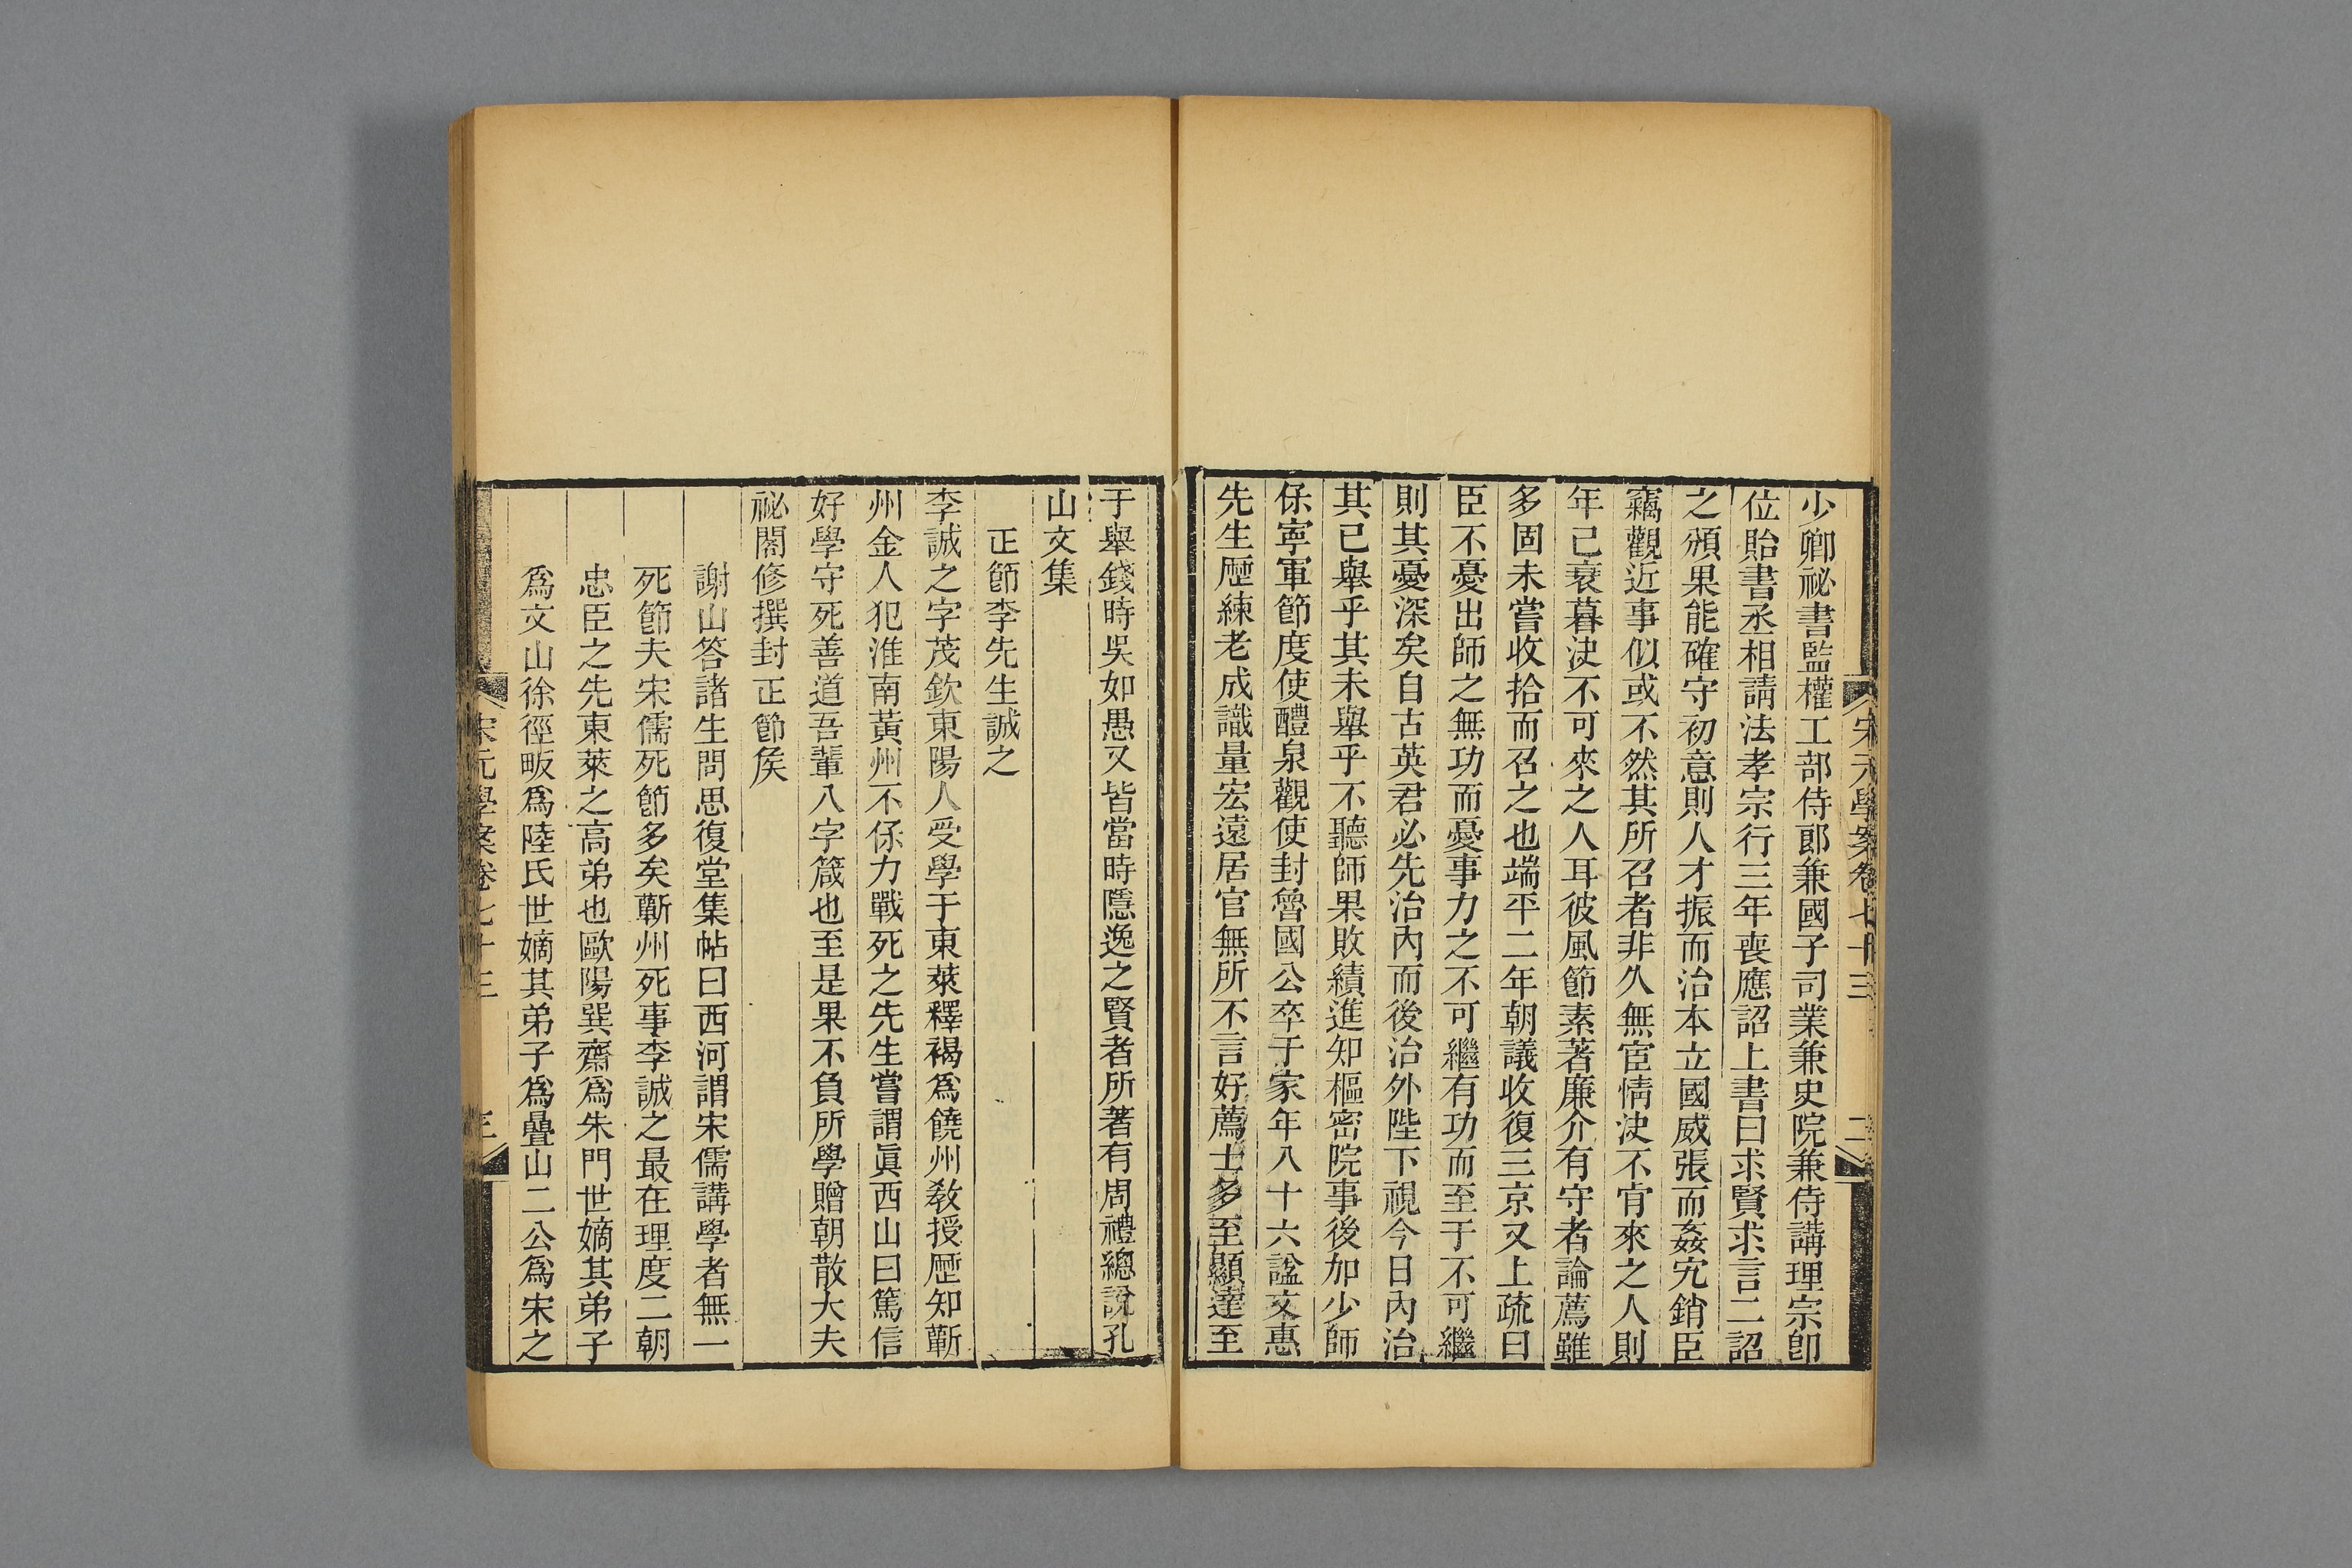 少卿祕書監權工部侍郎兼國子司業兼史院兼侍講理宗卽
位貽書丞相請法孝宗行三年喪應詔上書曰求賢求言二詔
之頒果能確守初意則人才振而治本立國威張而姦宄銷臣
竊觀近事似或不然其所召者非久無宦情決不肯來之人則
年已衰暮決不可來之人耳彼風節素著廉介有守者論薦雖
多固未嘗收拾而召之也端平二年朝議收復三京又上疏曰
臣不憂出師之無功而憂事力之不可繼有功而至于不可繼
則其憂深矣自古英君必先治內而後治外陛下視今日內治
其已舉乎其未舉乎不聽師果敗績進知樞密院事後加少師
保寧軍節度使醴泉觀使封魯國公卒于家年八十六諡文惠
先生歷練老成識量宏遠居官無所不言好薦士多至顯達至
宋元學案卷七十三
二
于舉錢時吳如愚又皆當時隱逸之賢者所著有周禮總說孔
山文集
正節李先生誠之
李誠之字茂欽東陽人受學于東萊釋褐爲饒州教授歷知蘄
州金人犯淮南黃州不保力戰死之先生嘗謂眞西山曰篤信
好學守死善道吾輩八字箴也至是果不負所學贈朝散大夫
祕閣修撰封正節侯
謝山答諸生問思復堂集帖曰西河謂宋儒講學者無一
死節夫宋儒死節多矣蘄州死事李誠之最在理度二朝
忠臣之先東萊之高弟也歐陽巽齋爲朱門世嫡其弟子
爲文山徐徑畈爲陸氏世嫡其弟子爲疊山二公爲宋之
宋元學案卷七十三
三